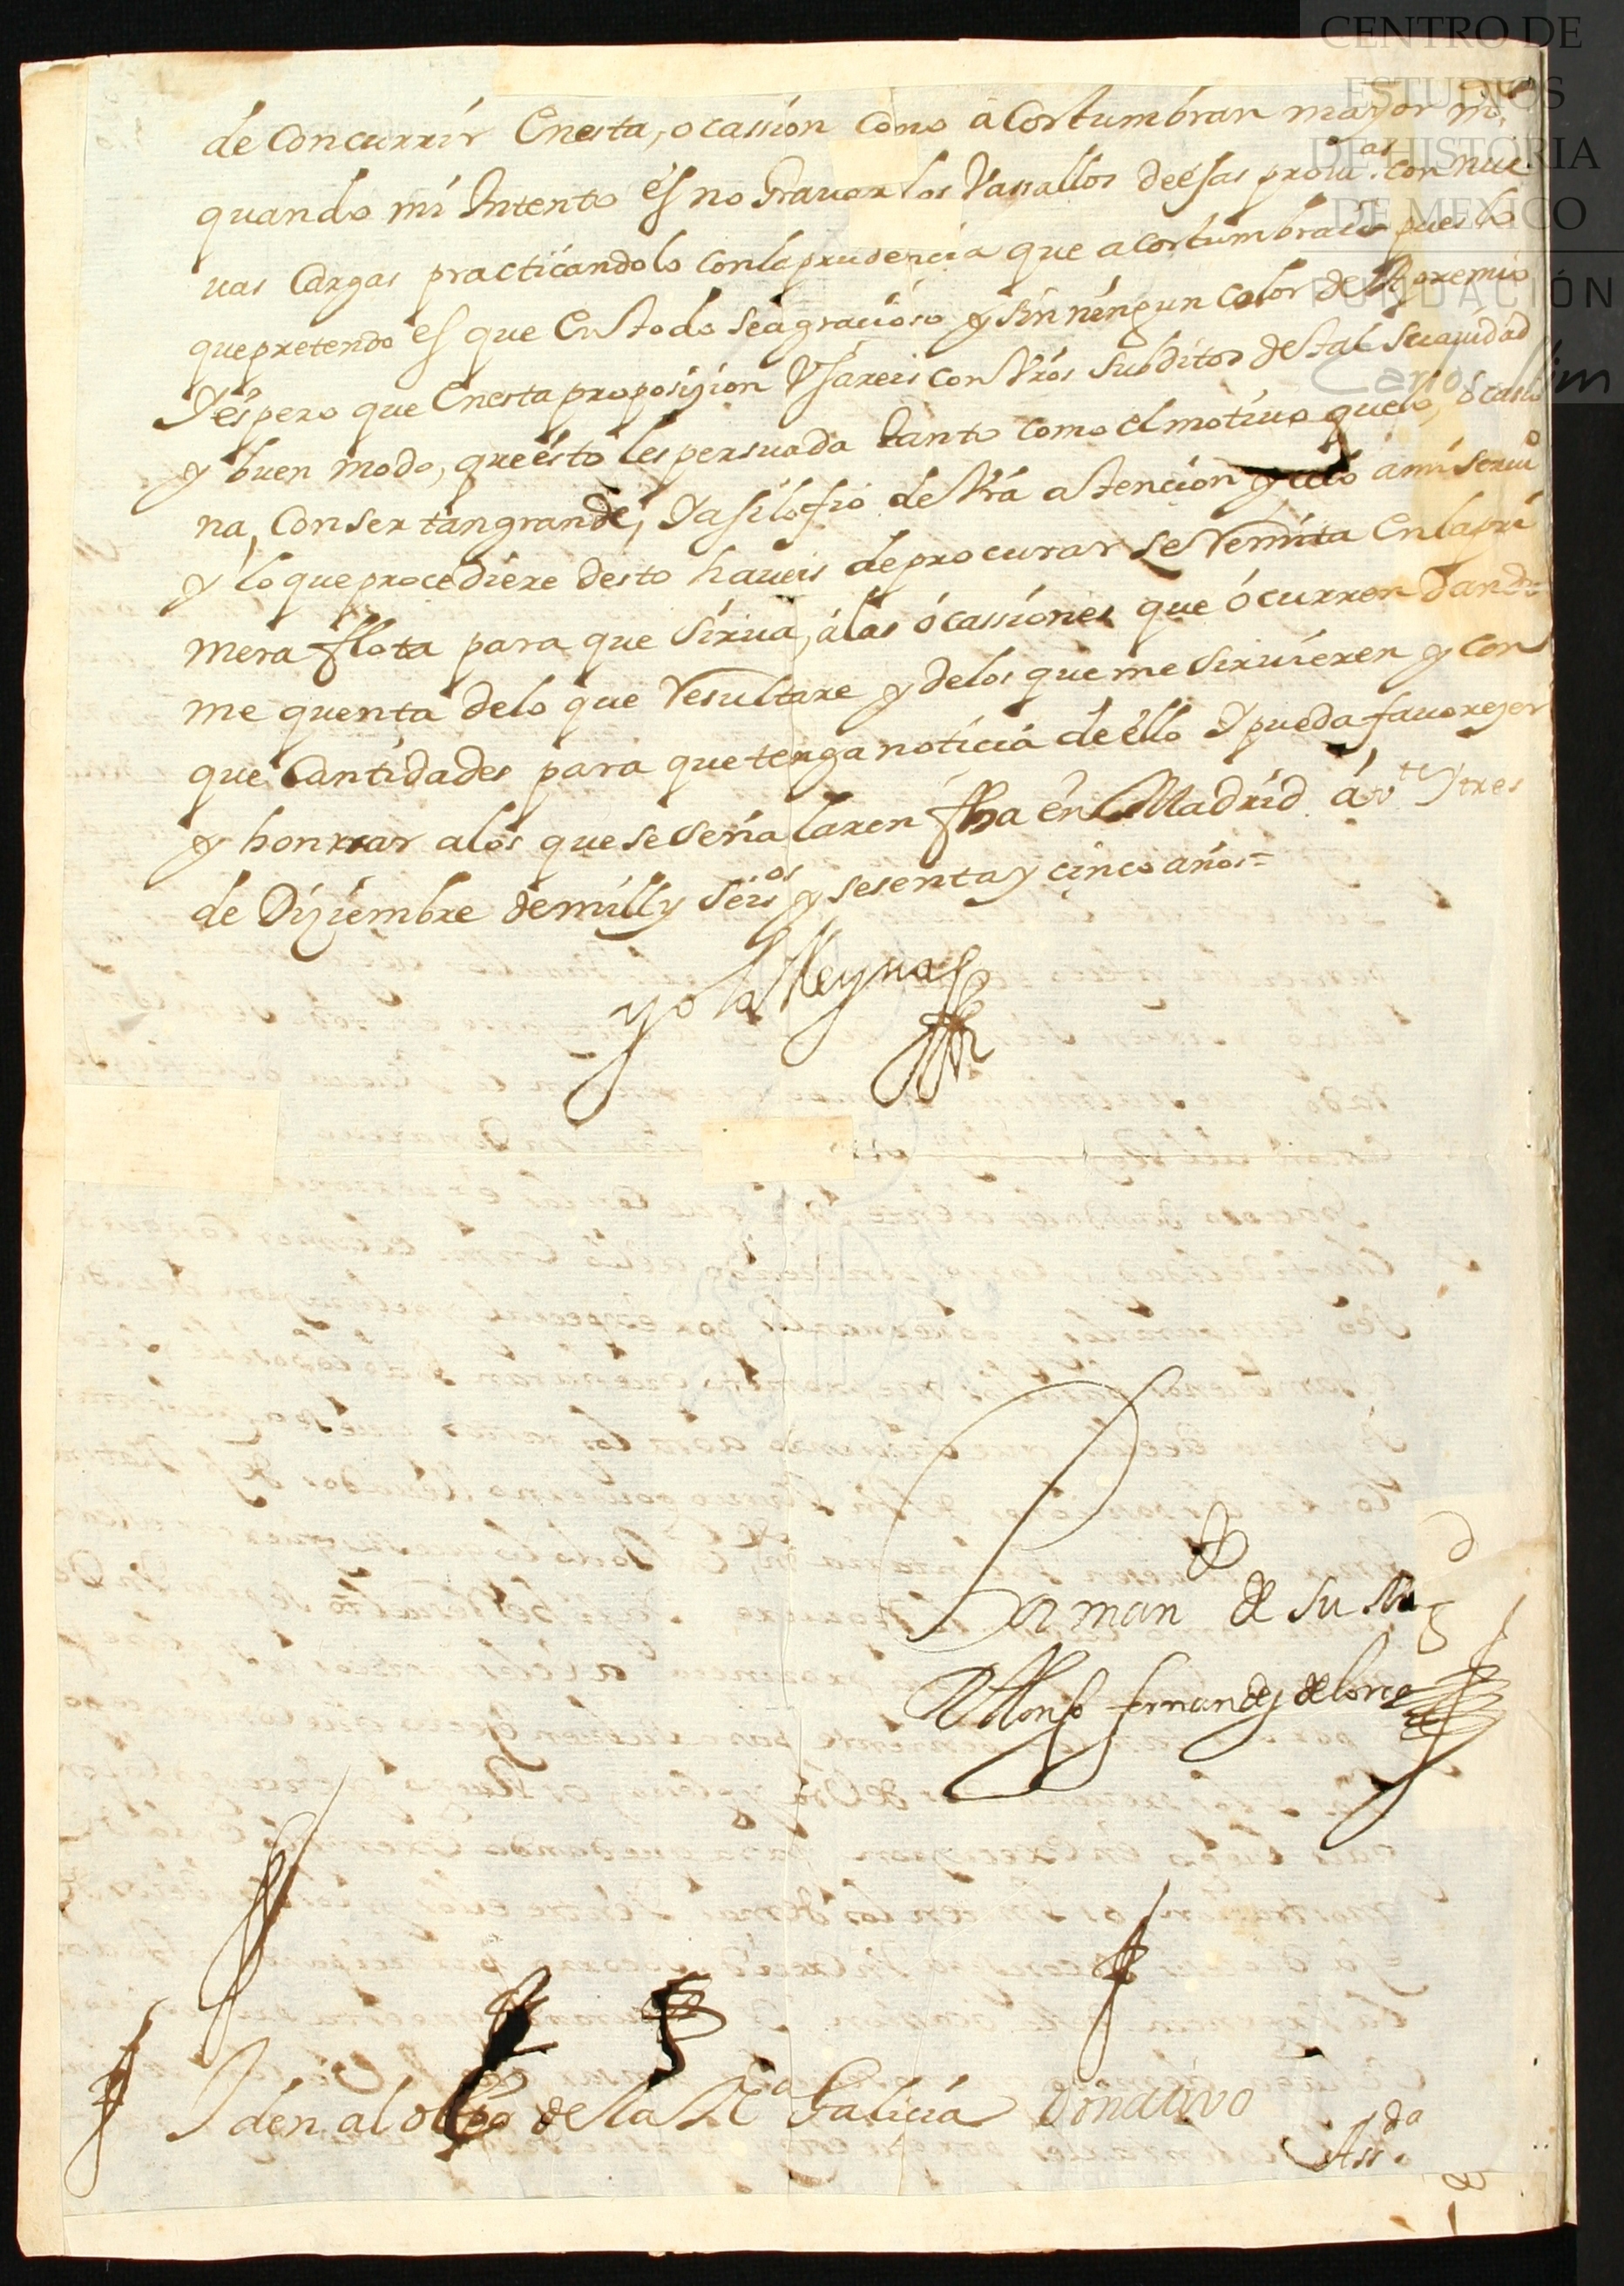 CENTRO DE
ESTUDIOS
DE HISTORIA
DE MEXICO
FUNDACIÓN
Carlos Slim
de concurrir Enesta, ocassion como à Costumbran mayor m.te
quando mi Intento és no Grauar los Vassallos deésas prouas. con nue
uas Cargas practicandolo conla prudencia que acostumbrais pues lo
que pretendo és que En todo seagracioso y Sin ningun Color de Apremio
Y éspero que Enesta proposiçion Vsareis con Vros Subditos de tal Suauidad
y buen modo, que ésto les persuada tanto como el motiuo que lo, ocasio
na, Conser tan grande, Y asi lo fio de Vra atençion y celo à mi Seruio
y lo que procediere desto haueis de procurar se Remita En la pri
mera flota para que Sirua, à las ócassiones que ócurren Dando
me quenta delo que Resultare y delos que me Siruieren y con
que Cantidades para que tenga noticia de éllo Y pueda fauoreçer
y honrrar alos que se señalaren fha én Madrid à vte Y tres
de Diziembre de mill y Seisos y sesenta y cinco años=
yo la Reyna
Por mando de su Magd
Alonso fernandez de lorca
Iden al obpo de la Na Galicia Donatiuo
Assdo